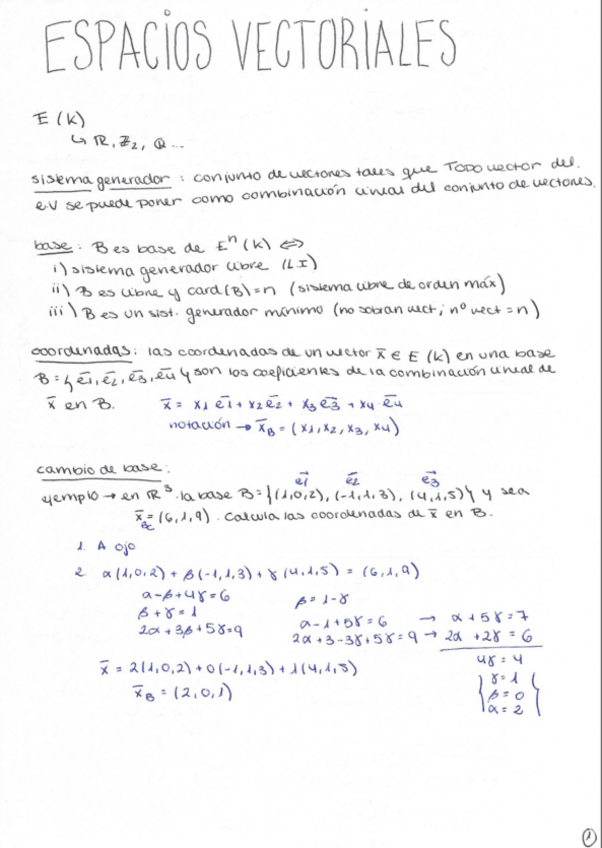 ESPACIOS VECTORIALES
E (K)
↳ ℝ, ℤ₂, ℚ ...
sistema generador : conjunto de vectores tales que TODO vector del
e.v se puede poner como combinación lineal del conjunto de vectores.
base : B es base de Eⁿ (K) ⇔
i) sistema generador libre (LI)
ii) B es libre y card (B) = n (sistema libre de orden máx)
iii) B es un sist. generador mínimo (no sobran vect, nº vect = n)
coordenadas : las coordenadas de un vector x̄ ∈ E (K) en una base
B = { e̅1, e̅2, e̅3, e̅4 } son los coeficientes de la combinación lineal de
x̄ en B. x̄ = x1 e̅1 + x2 e̅2 + x3 e̅3 + x4 e̅4
notación → x̄B = (x1, x2, x3, x4)
cambio de base :
e1 e2 e3
ejemplo → en ℝ³ la base B = {(1,0,2), (-1,1,3), (4,1,5)} y sea
x̄Bc = (6,1,9). Calcula las coordenadas de x̄ en B.
1. A ojo
2. α(1,0,2) + β(-1,1,3) + γ(4,1,5) = (6,1,9)
α-β+4γ=6 β=1-γ
β+γ=1 α-1+5γ=6 → α+5γ=7
2α+3β+5γ=9 2α+3-3γ+5γ=9 → 2α+2γ=6
x̄ = 2(1,0,2)+0(-1,1,3)+1(4,1,5) 4γ=4
γ=1
x̄B = (2,0,1) β=0
α=2
1